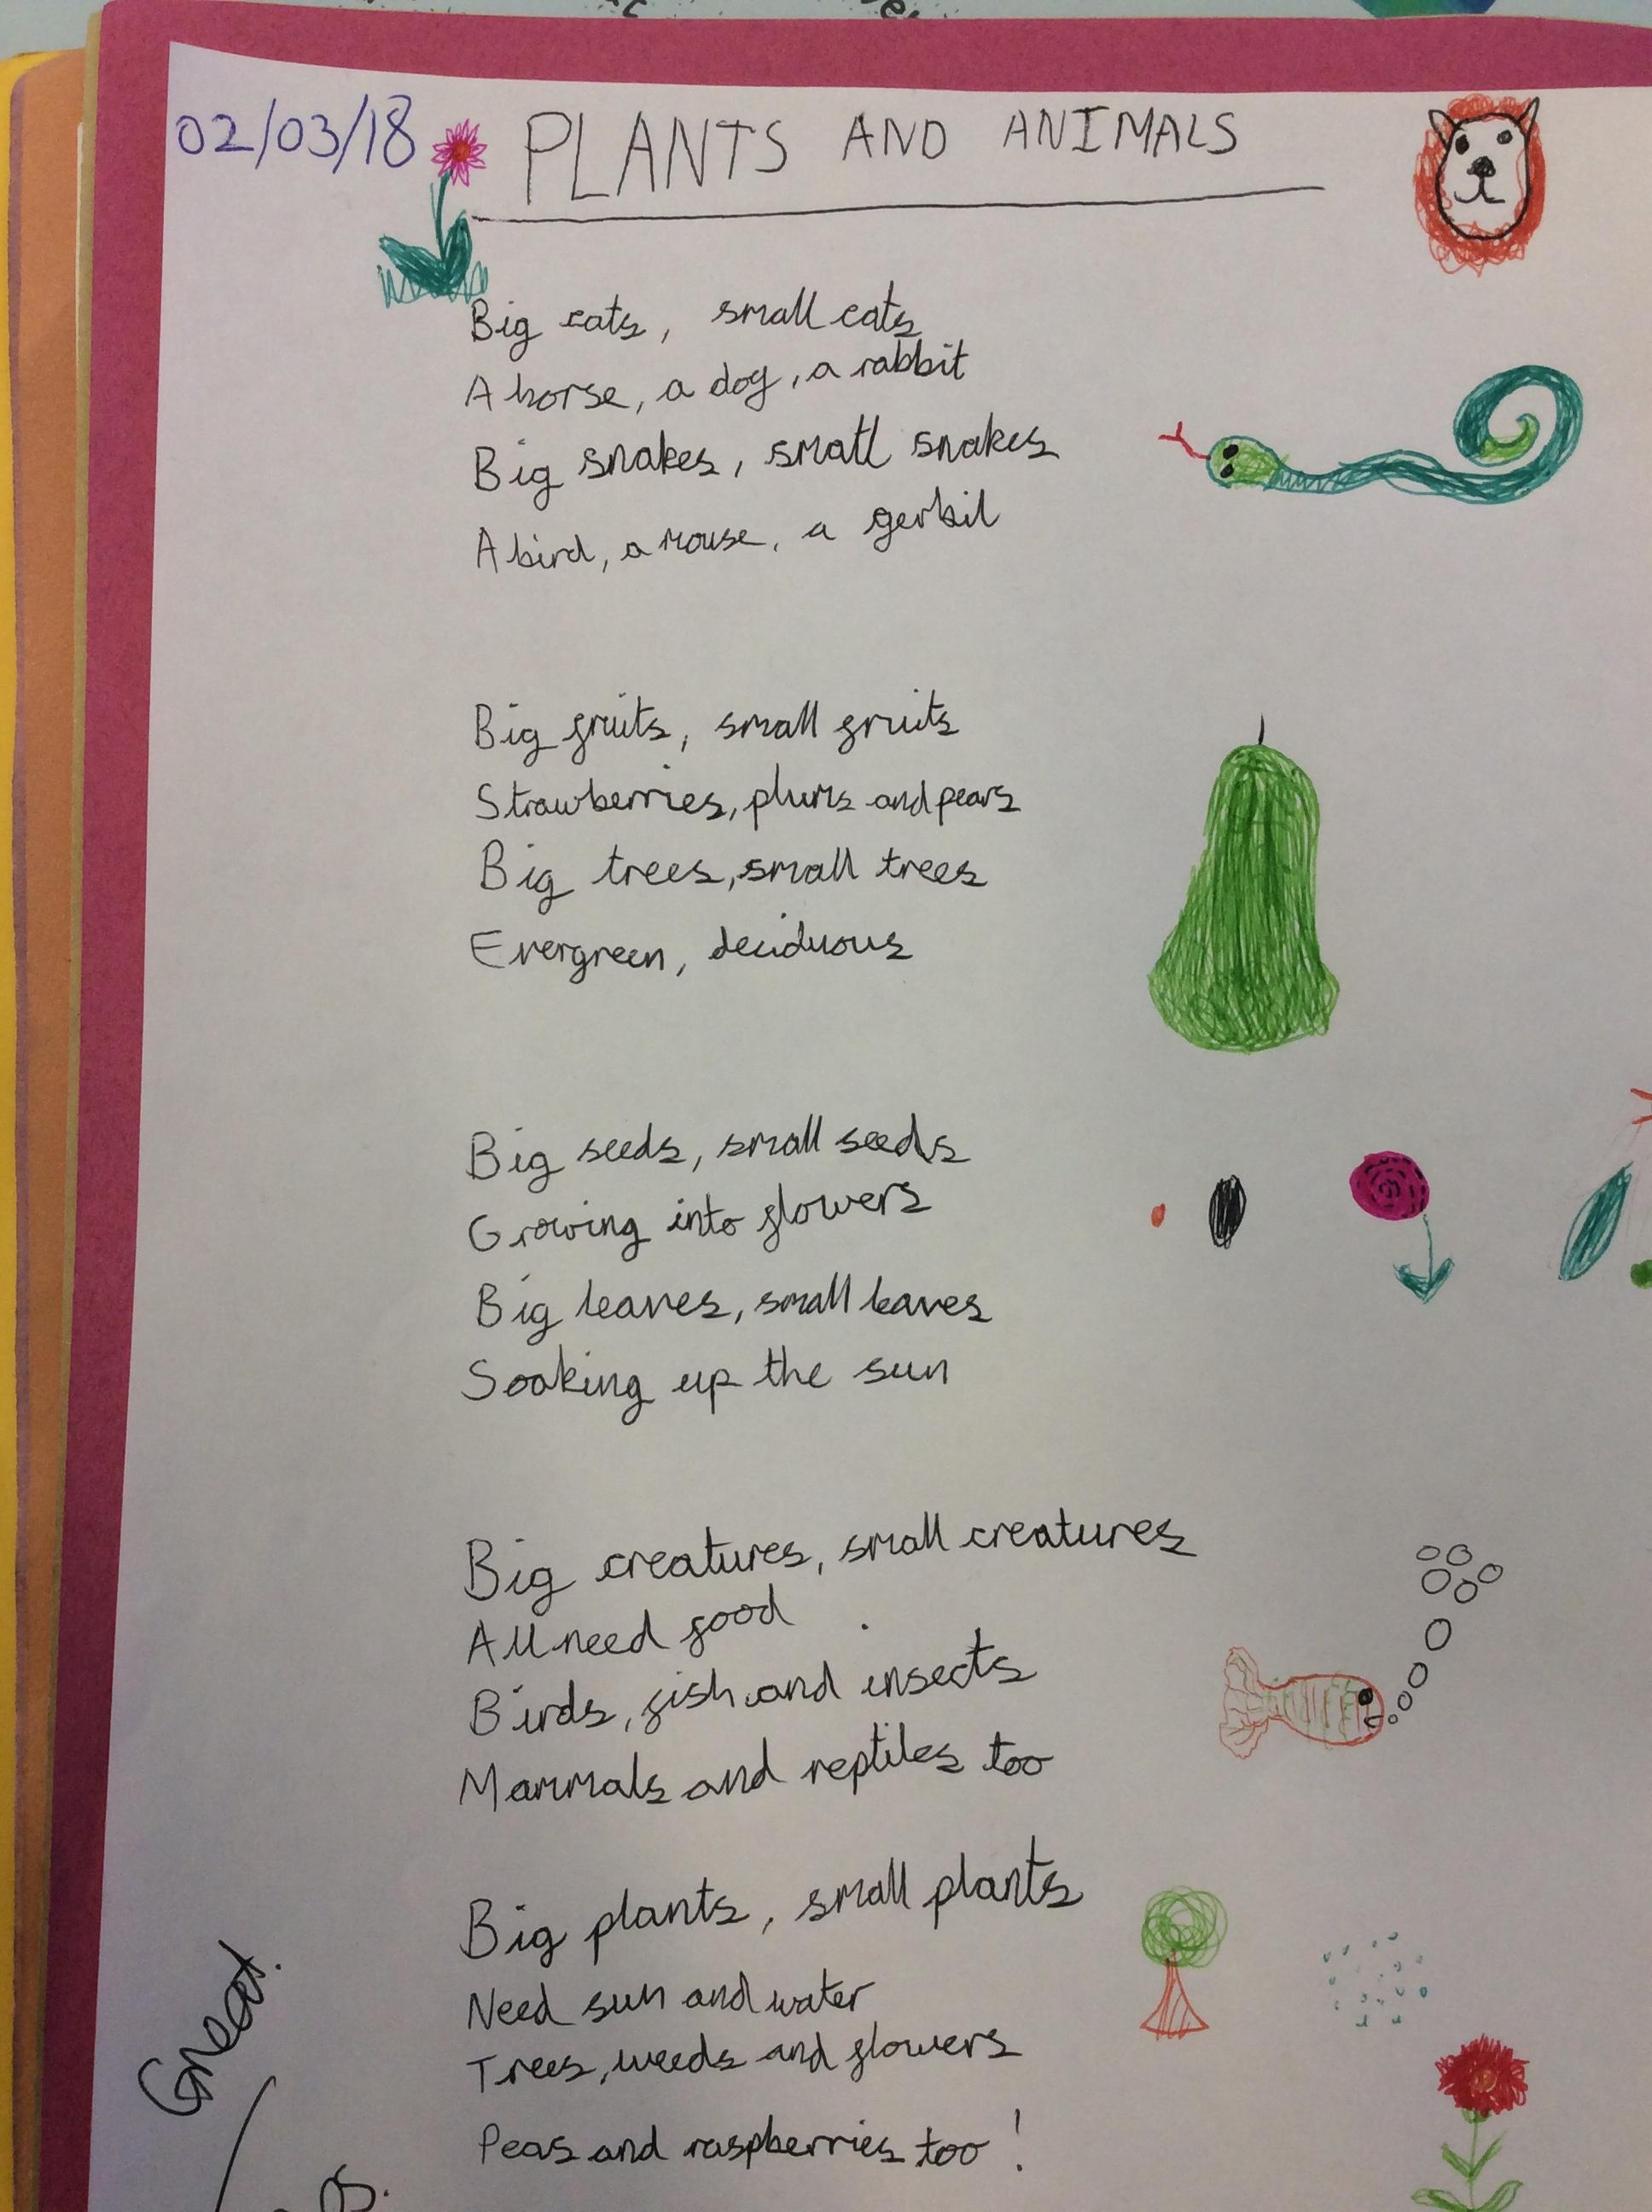 02/03/18 PLANTS AND ANIMALS
Big cats, small cats
A horse, a dog, a rabbit
Big snakes, small snakes
A bird, a mouse, a gerbil
Big fruits, small fruits
Strawberries, plums and pears
Big trees, small trees
Evergreen, deciduous
Big seeds, small seeds
Growing into flowers
Big leaves, small leaves
Soaking up the sun
Big creatures, small creatures
All need food
Birds, fish and insects
Mammals and reptiles too
Big plants, small plants
Need sun and water
Trees, weeds and flowers
Peas and raspberries too!
Great.